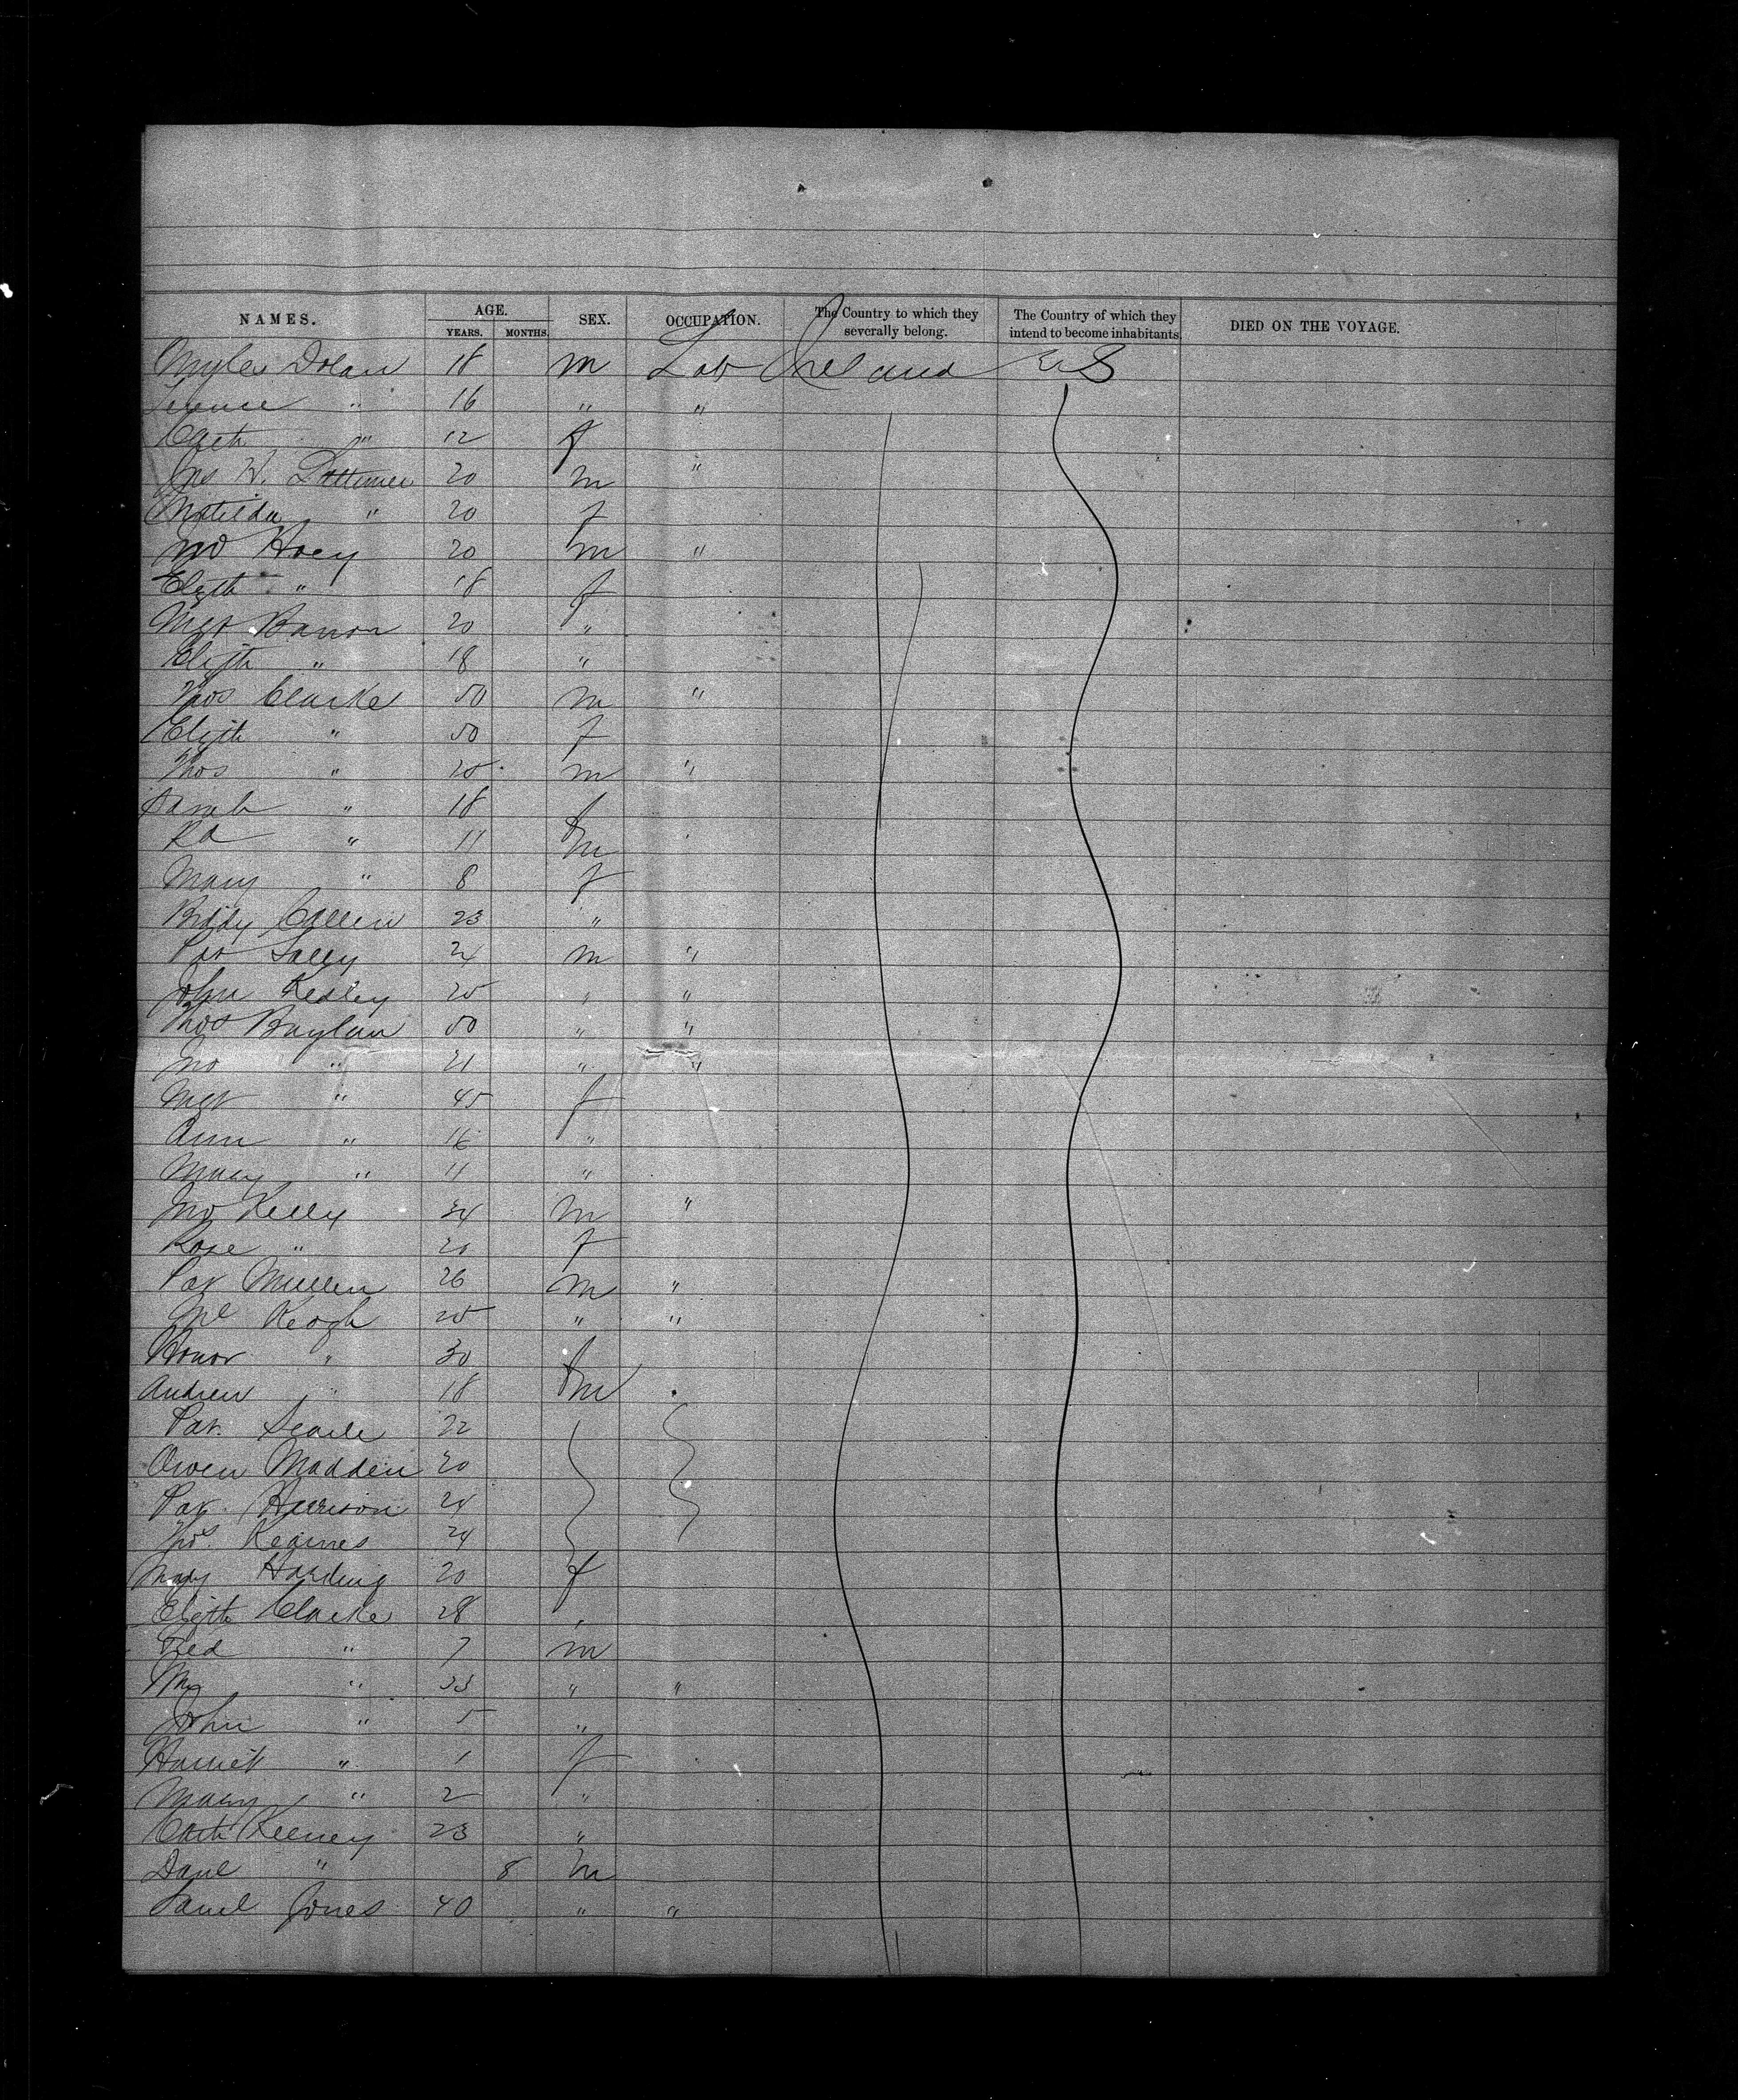 NAMES. AGE. SEX. OCCUPATION. The Country to which they severally belong. The Country of which they intend to become inhabitants DIED ON THE VOYAGE.
YEARS. MONTHS.
Myles Dolan 18 m Lab Ireland U S
Terence " 16 " "
Cath " 12 f
Jas W. 20 m "
Matilda " 20 f
Jno Hoey 20 m "
Elizth " 18 f
Mgt Barron 20 "
Elizth " 18 "
Thos Clarke 50 m "
Elizth " 50 f
Thos " 25 m "
Sarah " 18 f
Rd " 11 m
Mary " 8 f
Biddy Cullen 23 "
Pat Lally 24 m "
John Kedley 25 " "
Thos Boylan 50 " "
Jno " 21 " "
Mgt " 45 f
Ann " 16 "
Mary " 11 "
Jno Kelly 34 m "
Rose " 20 f
Pat Mullen 26 m "
Ml Keogh 25 " "
Honor " 30 f
Andrew " 18 m
Pat. 22
Owen Madden 20
Pat. Harrison 24
Thos. Kearnes 24
Mary Harding 20 f
Elizth Clarke 28 "
Fred " 7 m
Wm " 33 " "
John " 5 "
Harriet " 1 f
Mary " 2 "
Cath Keeney 23 "
Danl " 8 m
Saml Jones 40 " "